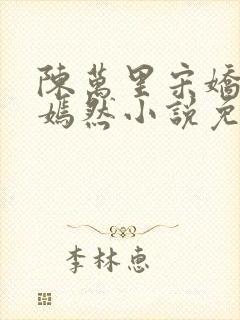 陳萬里宋嬌
嫣然小說免
李林惠